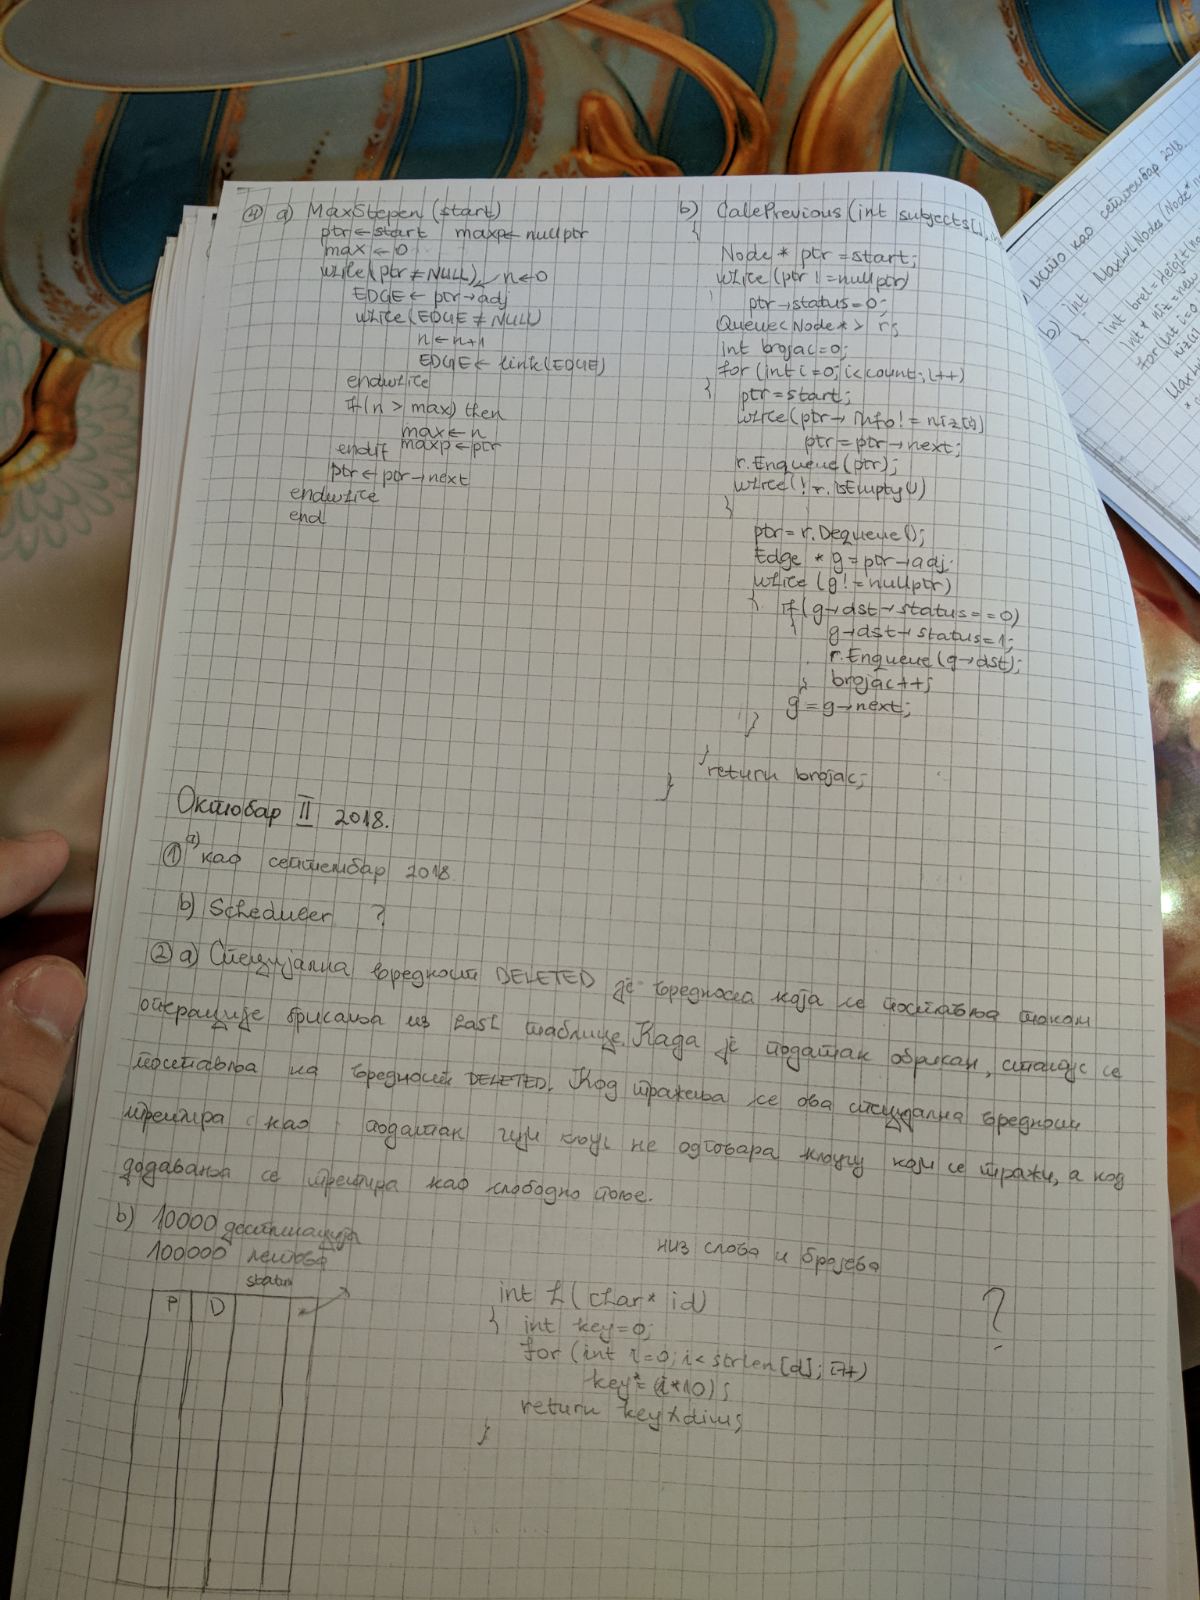 ④ a) MaxStepen (start)
ptr ← start maxp ← nullptr
max ← 0
while (ptr ≠ NULL) n ← 0
EDGE ← ptr → adj
while (EDGE ≠ NULL)
n ← n+1
EDGE ← link(EDGE)
endwhile
if (n > max) then
max ← n
maxp ← ptr
endif
ptr ← ptr → next
endwhile
end
b) CalcPrevious (int subjects[],
{
Node * ptr = start;
while (ptr != nullptr)
ptr → status = 0;
Queue<Node*> r;
int brojac = 0;
for (int i=0; i<count; i++)
{ ptr = start;
while (ptr → info != niz[i])
ptr = ptr → next;
r.Enqueue(ptr);
while (! r.isEmpty())
{
ptr = r.Dequeue();
Edge * g = ptr → adj;
while (g != nullptr)
{ if (g → dst → status == 0)
{ g → dst → status = 1;
r.Enqueue (g → dst);
} brojac++;
g = g → next;
}
}
return brojac;
}
Октобар II 2018.
① a) као септембар 2018.
b) Scheduler ?
② a) Специјална вредност DELETED је вредност која се поставља током
операције брисања из hash таблице. Када је податак обрисан, статус се
поставља на вредност DELETED. Код тражења се ова специјална вредност
третира као податак чији кључ не одговара кључу који се тражи, а код
додавања се третира као слободно поље.
b) 10000 дестинација
100000 летова
низ слова и бројева
status
P D
int h (char* id)
{ int key=0;
for (int i=0; i< strlen[id]; i++)
key *= (i*10);
return key % dim;
}
?
као септембар 2018.
b) int MaxLvlNodes (Node*
{ int brel = Height(
int * niz = new
for (int i=0